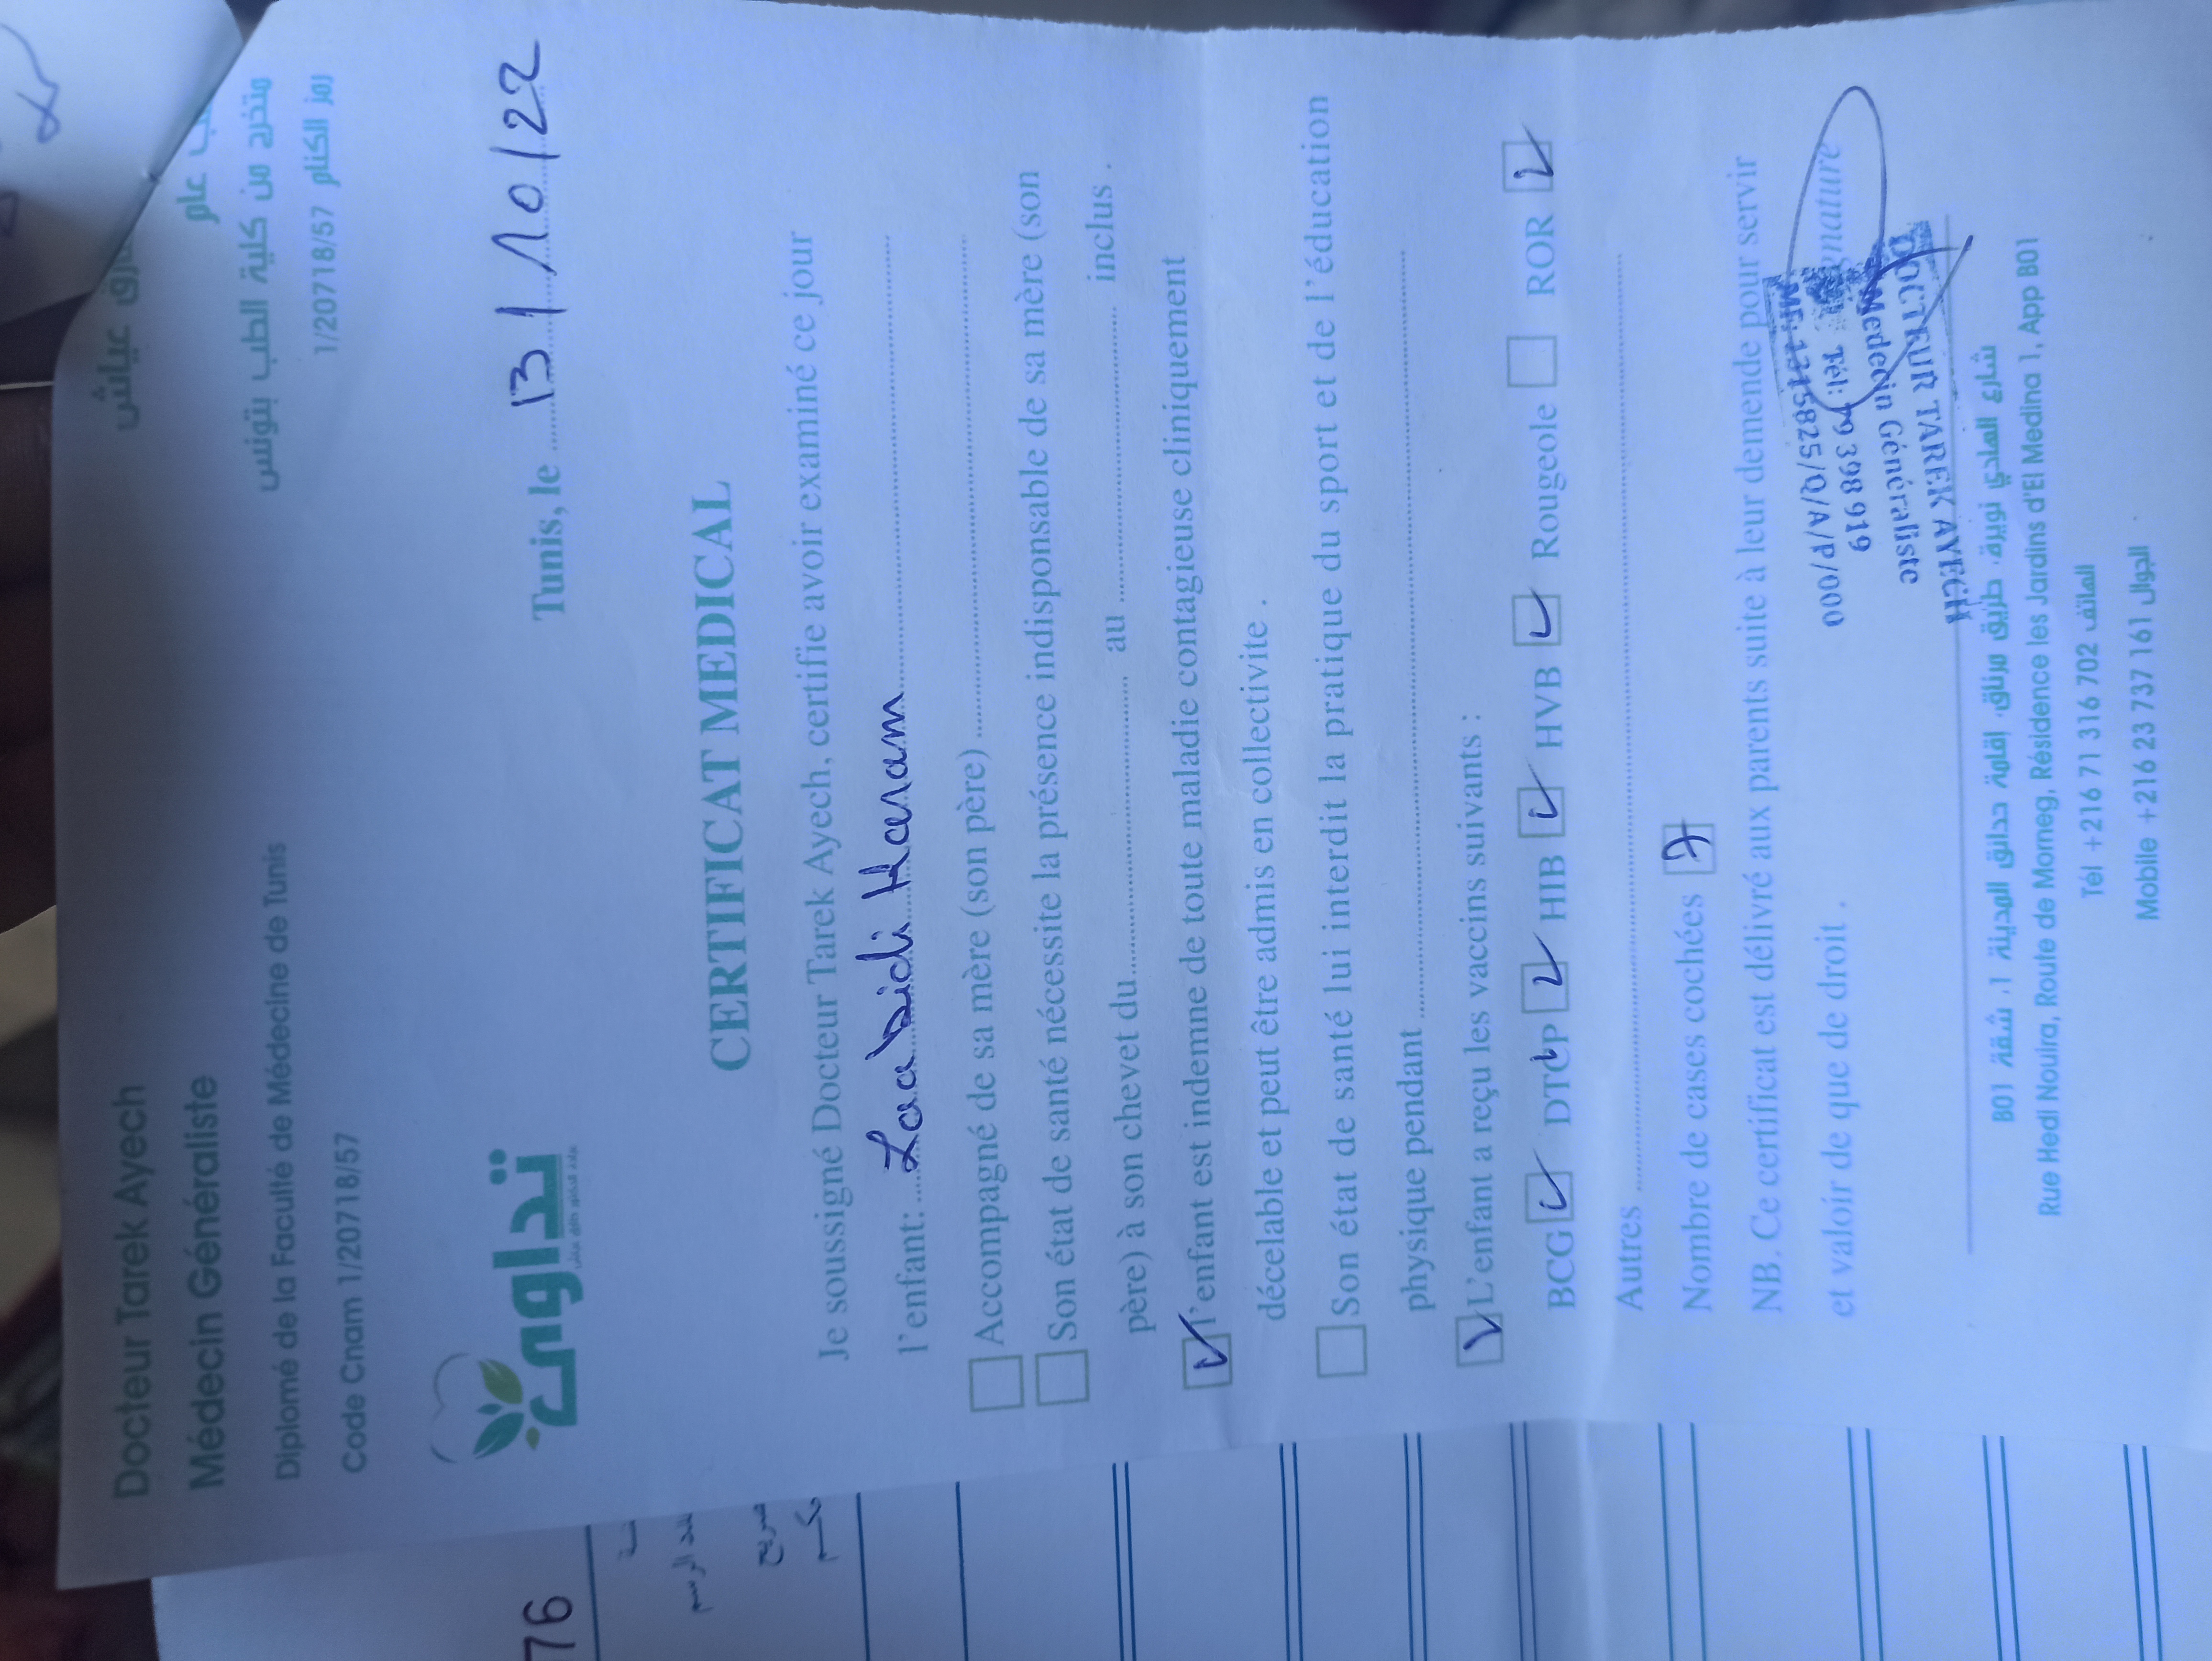 Docteur Tarek Ayech
Médecin Généraliste
Diplomé de la Faculté de Médecine de Tunis
Code Cnam 1/20718/57
عياش
عام
متخرج من كلية الطب بتونس
رمز الكنام 1/20718/57
تداوى
Tunis, le 13/10/22
CERTIFICAT MEDICAL
Je soussigné Docteur Tarek Ayech, certifie avoir examiné ce jour
l'enfant: Laabidi
Accompagné de sa mère (son père)
Son état de santé nécessite la présence indisponsable de sa mère (son
père) à son chevet du au inclus .
l'enfant est indemne de toute maladie contagieuse cliniquement
décelable et peut être admis en collectivite .
Son état de santé lui interdit la pratique du sport et de l'éducation
physique pendant
L'enfant a reçu les vaccins suivants :
BCG DTCP HIB HVB Rougeole ROR
Autres
Nombre de cases cochées 7
NB. Ce certificat est délivré aux parents suite à leur demende pour servir
et valoir de que de droit .
DOCTEUR TAREK AYECH
Medecin Généraliste
398 919
5825/Q/A/P/000
شارع الهادي نويرة، طريق مرناق، إقامة حدائق المدينة 1، شقة B01
Rue Hedi Nouira, Route de Morneg, Résidence les Jardins d'El Medina 1, App B01
Tél +216 71 316 702 الهاتف
Mobile +216 23 737 161 الجوال
76